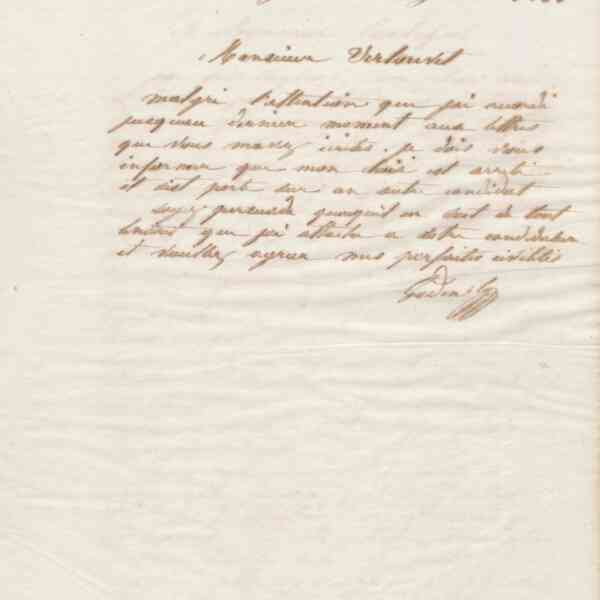 Monsieur Verlouvet
malgré l'attention que j'ai accordé
jusqu'au dernier moment aux lettres
que vous mavez écrites. je dois vous
informer que mon choix est arrêté
et s'est porté sur un autre candidat
soyez persuadé quoiqu'il en soit de tout
que j'ai attaché a votre candidature
et veuillez agréer mes parfaites civilités
Godin